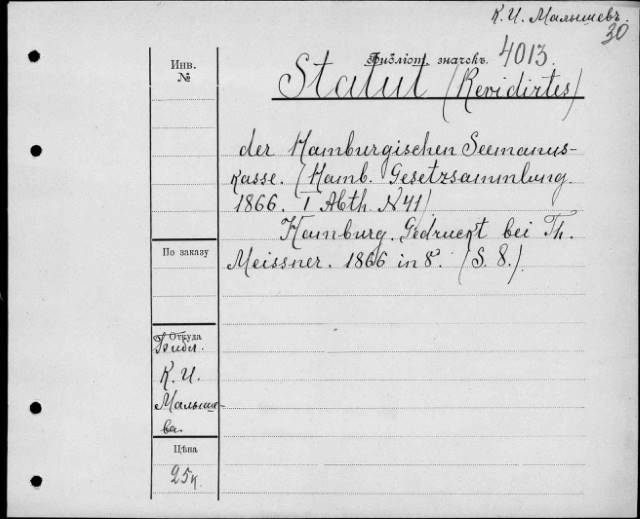 К. И. Малышевъ.
30
Инв.
№
Библіот. значокъ. 4013.
Statut (Revidirtes)
der Hamburgischen Seemanns-
kasse. (Hamb. Gesetzsammlung.
1866. I Abth. N 41)
Hamburg. Gedruckt bei Th.
Meissner. 1866 in 8°. (S. 8.)
По заказу
Откуда
Библ.
К. И.
Малыше-
ва.
Цѣна
25 к.